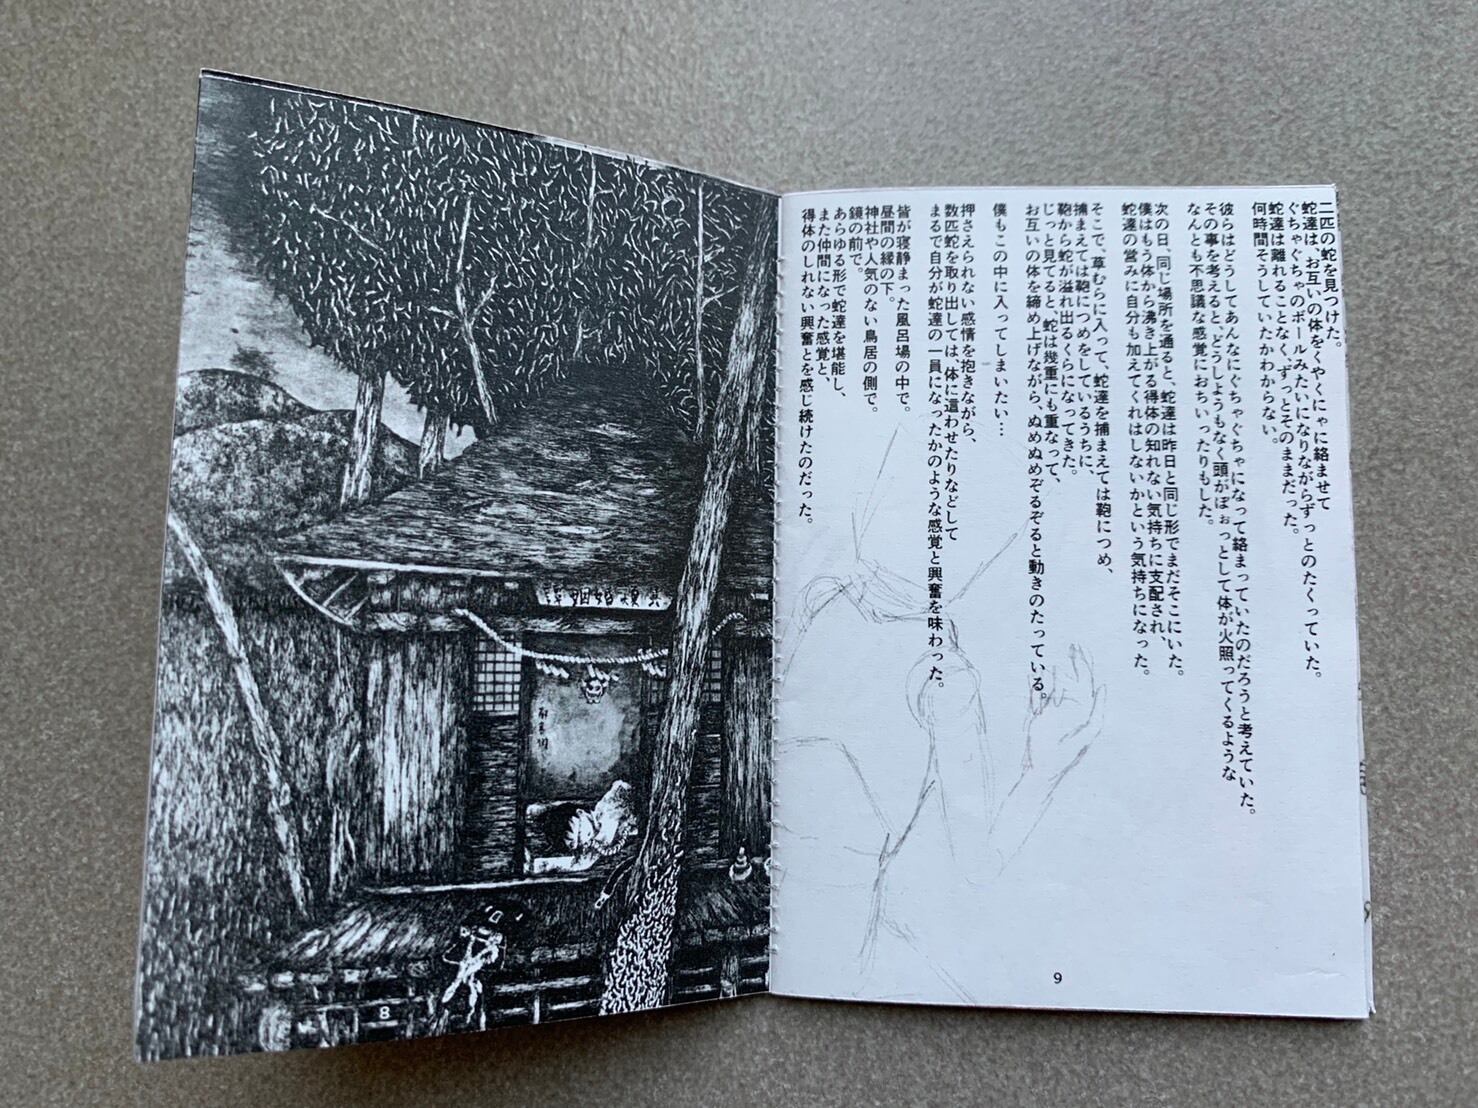 二匹の蛇を見つけた。
蛇達は、お互いの体をくやくにゃに絡ませて
ぐちゃぐちゃのボールみたいになりながらずっとのたくっていた。
蛇達は離れることなく、ずっとそのままだった。
何時間そうしていたかわからない。
彼らはどうしてあんなにぐちゃぐちゃになって絡まっていたのだろうと考えていた。
その事を考えると、どうしようもなく頭がぼぉっとして体が火照ってくるような
なんとも不思議な感覚におちいったりもした。
次の日、同じ場所を通ると、蛇達は昨日と同じ形でまだそこにいた。
僕はもう体から沸き上がる得体の知れない気持ちに支配され、
蛇達の営みに自分も加えてくれはしないかという気持ちになった。
そこで、草むらに入って、蛇達を捕まえては鞄につめ、
捕まえては鞄につめをしているうちに、
鞄から蛇が溢れ出るくらになってきた。
じっと見てると、蛇は幾重にも重なって、
お互いの体を締め上げながら、ぬめぬめぞるぞると動きのたっている。
僕もこの中に入ってしまいたい…
押さえられない感情を抱きながら、
数匹蛇を取り出しては、体に這わせたりなどして
まるで自分が蛇達の一員になったかのような感覚と興奮を味わった。
皆が寝静まった風呂場の中で。
昼間の縁の下。
神社や人気のない鳥居の側で。
鏡の前で。
あらゆる形で蛇達を堪能し、
また仲間になった感覚と、
得体のしれない興奮とを感じ続けたのだった。
8
9